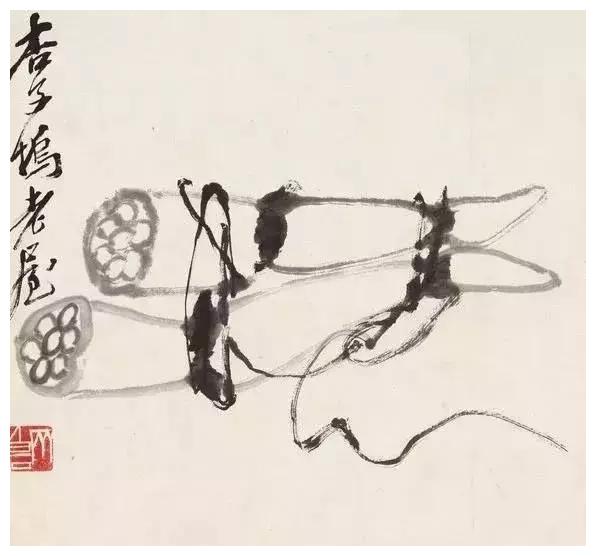 杏子塢老屋